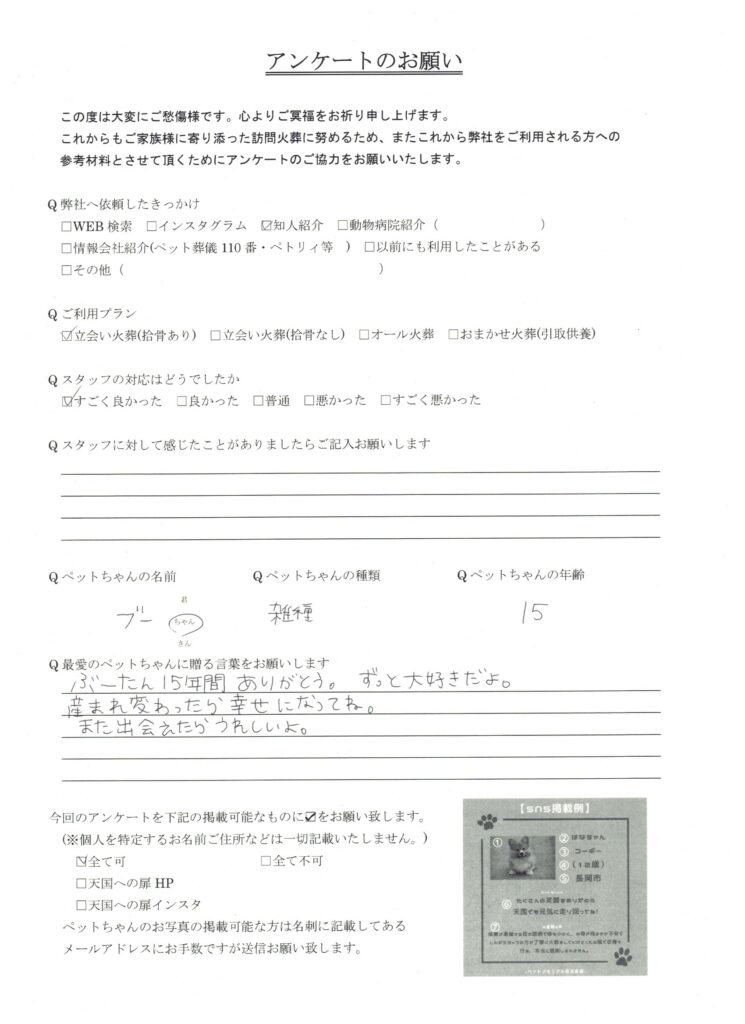 アンケートのお願い
この度は大変にご愁傷様です。心よりご冥福をお祈り申し上げます。
これからもご家族様に寄り添った訪問火葬に努めるため、またこれから弊社をご利用される方への
参考材料とさせて頂くためにアンケートのご協力をお願いいたします。
Q 弊社へ依頼したきっかけ
□WEB 検索 □インスタグラム ☑知人紹介 □動物病院紹介（ ）
□情報会社紹介(ペット葬儀 110 番・ペトリィ等 ) □以前にも利用したことがある
□その他（ ）
Q ご利用プラン
☑立会い火葬(拾骨あり) □立会い火葬(拾骨なし) □オール火葬 □おまかせ火葬(引取供養)
Q スタッフの対応はどうでしたか
☑すごく良かった □良かった □普通 □悪かった □すごく悪かった
Q スタッフに対して感じたことがありましたらご記入お願いします
Q ペットちゃんの名前 Q ペットちゃんの種類 Q ペットちゃんの年齢
君
ブー ちゃん 雑種 15
さん
Q 最愛のペットちゃんに贈る言葉をお願いします
ぶーたん 15年間 ありがとう。 ずっと大好きだよ。
産まれ変わったら幸せになってね。
また出会えたらうれしいよ。
今回のアンケートを下記の掲載可能なものに☑をお願い致します。
(※個人を特定するお名前ご住所などは一切記載いたしません。)
☑全て可 □全て不可
□天国への扉 HP
□天国への扉インスタ
ペットちゃんのお写真の掲載可能な方は名刺に記載してある
メールアドレスにお手数ですが送信お願い致します。
【sns掲載例】
① ② はなちゃん
③ コーギー
④ (12歳)
⑤ 長岡市
⑥ たくさんの笑顔をありがとう
天国でも元気に走り回ってね!
⑦